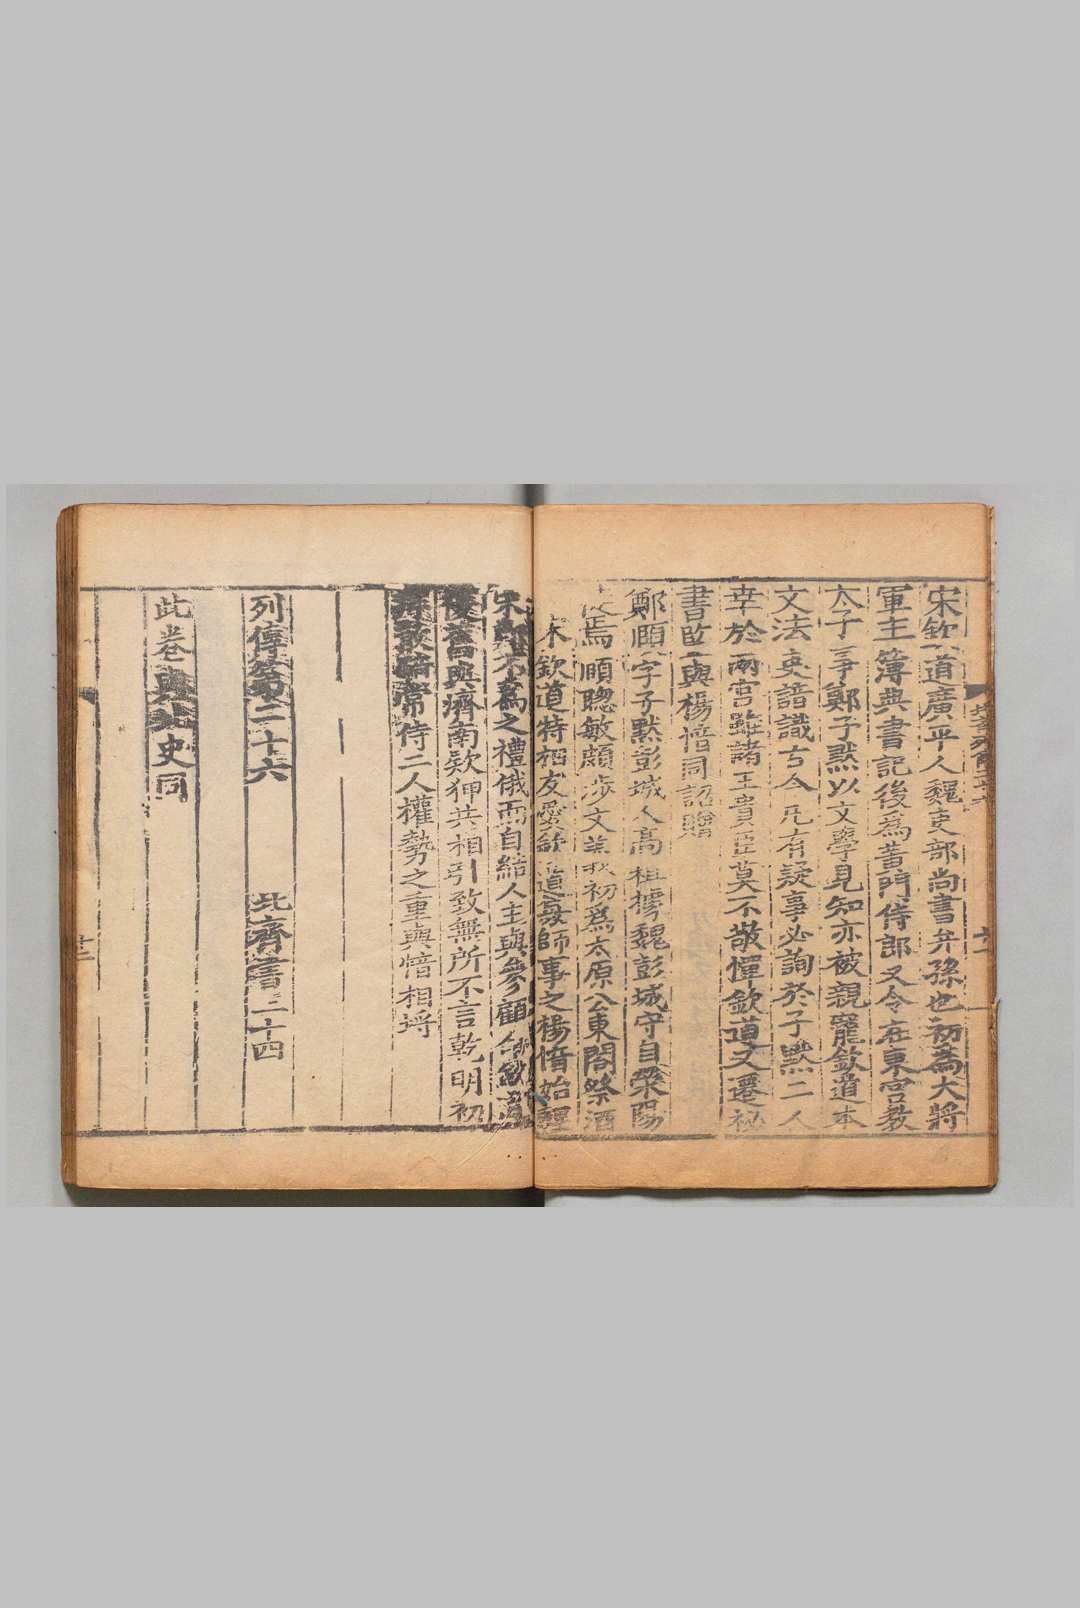 宋欽道廣平人魏吏部尚書弁孫也初爲大將
軍主簿典書記後爲黄門侍郎又令在東宮教
太子事鄭子黙以文學見知亦被親寵欽道本
文法吏諳識古今凡有疑事必詢於子黙二人
幸於兩宮雖諸王貴臣莫不敬憚欽道又遷秘
書監與楊愔同詔贈
鄭頤字子黙彭城人髙祖據魏彭城守自滎陽
焉頤聰敏頗涉文初爲太原公東閤祭酒
宋欽道特相友愛欽道每師事之楊愔始輕
宋鄭不爲之禮俄而自結人主與參顧
舊與濟南欵狎共相引致無所不言乾明初
騎常侍二人權勢之重與愔相埒
列傳第二十六 北齊書三十四
此卷與北史同
廿三